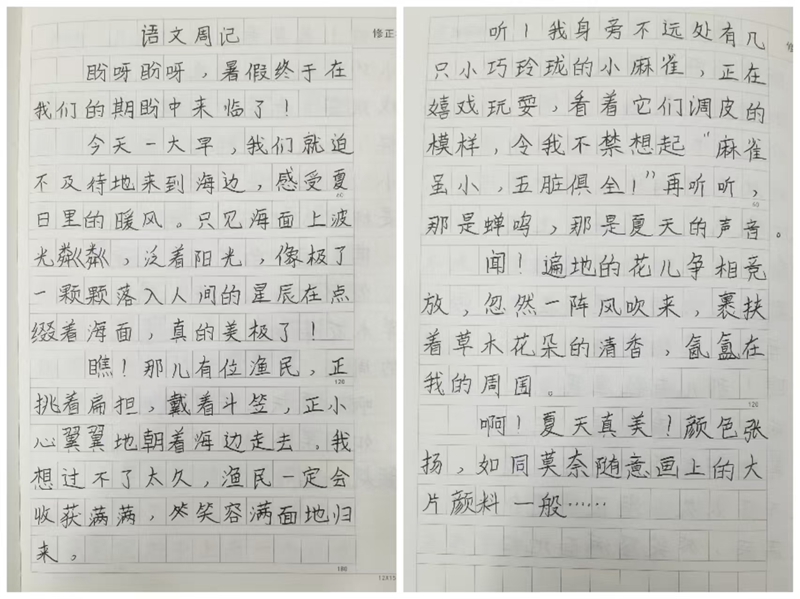 语文周记
修正
盼呀盼呀，暑假终于在
我们的期盼中来临了！
今天一大早，我们就迫
不及待地来到海边，感受夏
60
日里的暖风。只见海面上波
光粼粼，泛着阳光，像极了
一颗颗落入人间的星辰在点
缀着海面，真的美极了！
瞧！那儿有位渔民，正
120
挑着扁担，戴着斗笠，正小
心翼翼地朝着海边走去。我
想过不了太久，渔民一定会
收获满满，笑容满面地归
来。
180
12X15
听！我身旁不远处有几
只小巧玲珑的小麻雀，正在
嬉戏玩耍，看着它们调皮的
模样，令我不禁想起“麻雀
虽小，五脏俱全！”再听听，
60
那是蝉鸣，那是夏天的声音。
闻！遍地的花儿争相竞
放，忽然一阵风吹来，裹挟
着草木花朵的清香，氤氲在
我的周围。
120
啊！夏天真美！颜色张
扬，如同莫奈随意画上的大
片颜料一般……